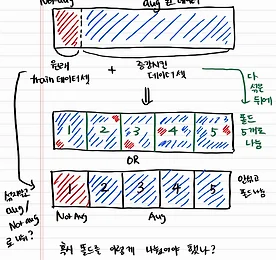 Not Aug
Aug
원래
train 데이터셋
+
증강시킨
데이터셋
다
섞은
뒤에
폴드
5개로
나눔
1 2 3 4 5
OR
1 2 3 4 5
Not Aug
Aug
aug /
Not aug
로 나눔?
혹시 폴드를 어떻게 나눴어야 했나?